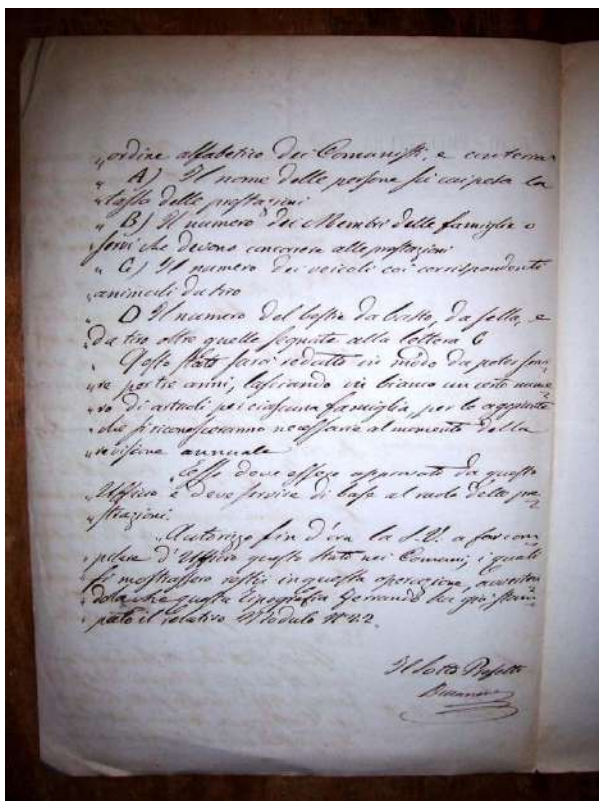 „ordine alfabetico dei Comunisti, e conterrà
„ A) Il nome delle persone su cui pesa la
„tassa delle prestazioni
„ B) Il numero dei Membri delle famiglie o
„servi che devono concorrere alle prestazioni
„ C) Il numero dei veicoli coi corrispondenti
„animali da tiro
„ D Il numero del bestie da basto, da sella, e
„da tiro oltre quelle segnate alla lettera C
„ Questo stato sarà redatto in modo da poter servi=
„re per tre anni, lasciando in bianco un certo nume=
„ro di articoli per ciascuna famiglia, per le aggiunte
„che si riconosceranno necessarie al momento della
„revisione annuale
„Esso deve essere approvato da questo
„Ufficio e deve servire di base al ruolo delle pre=
„stazioni.
„Autorizzo fin d'ora la S.V. a far com=
piere d'Ufficio questo stato nei Comuni, i quali
si mostrassero restii in questa operazione, avverten=
dola che questa Tipografia Ferrando ha già stam=
pato il relativo Modulo N° 2.
Il Sotto Prefetto